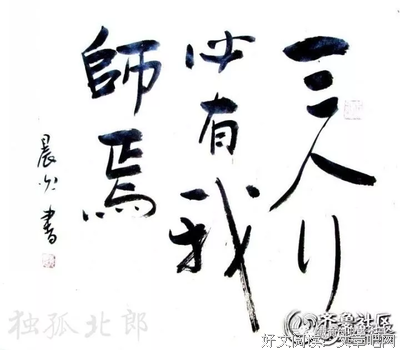 三人行
必有我
師焉
晨光書
独孤北郎
齐鲁社区
好文阅读